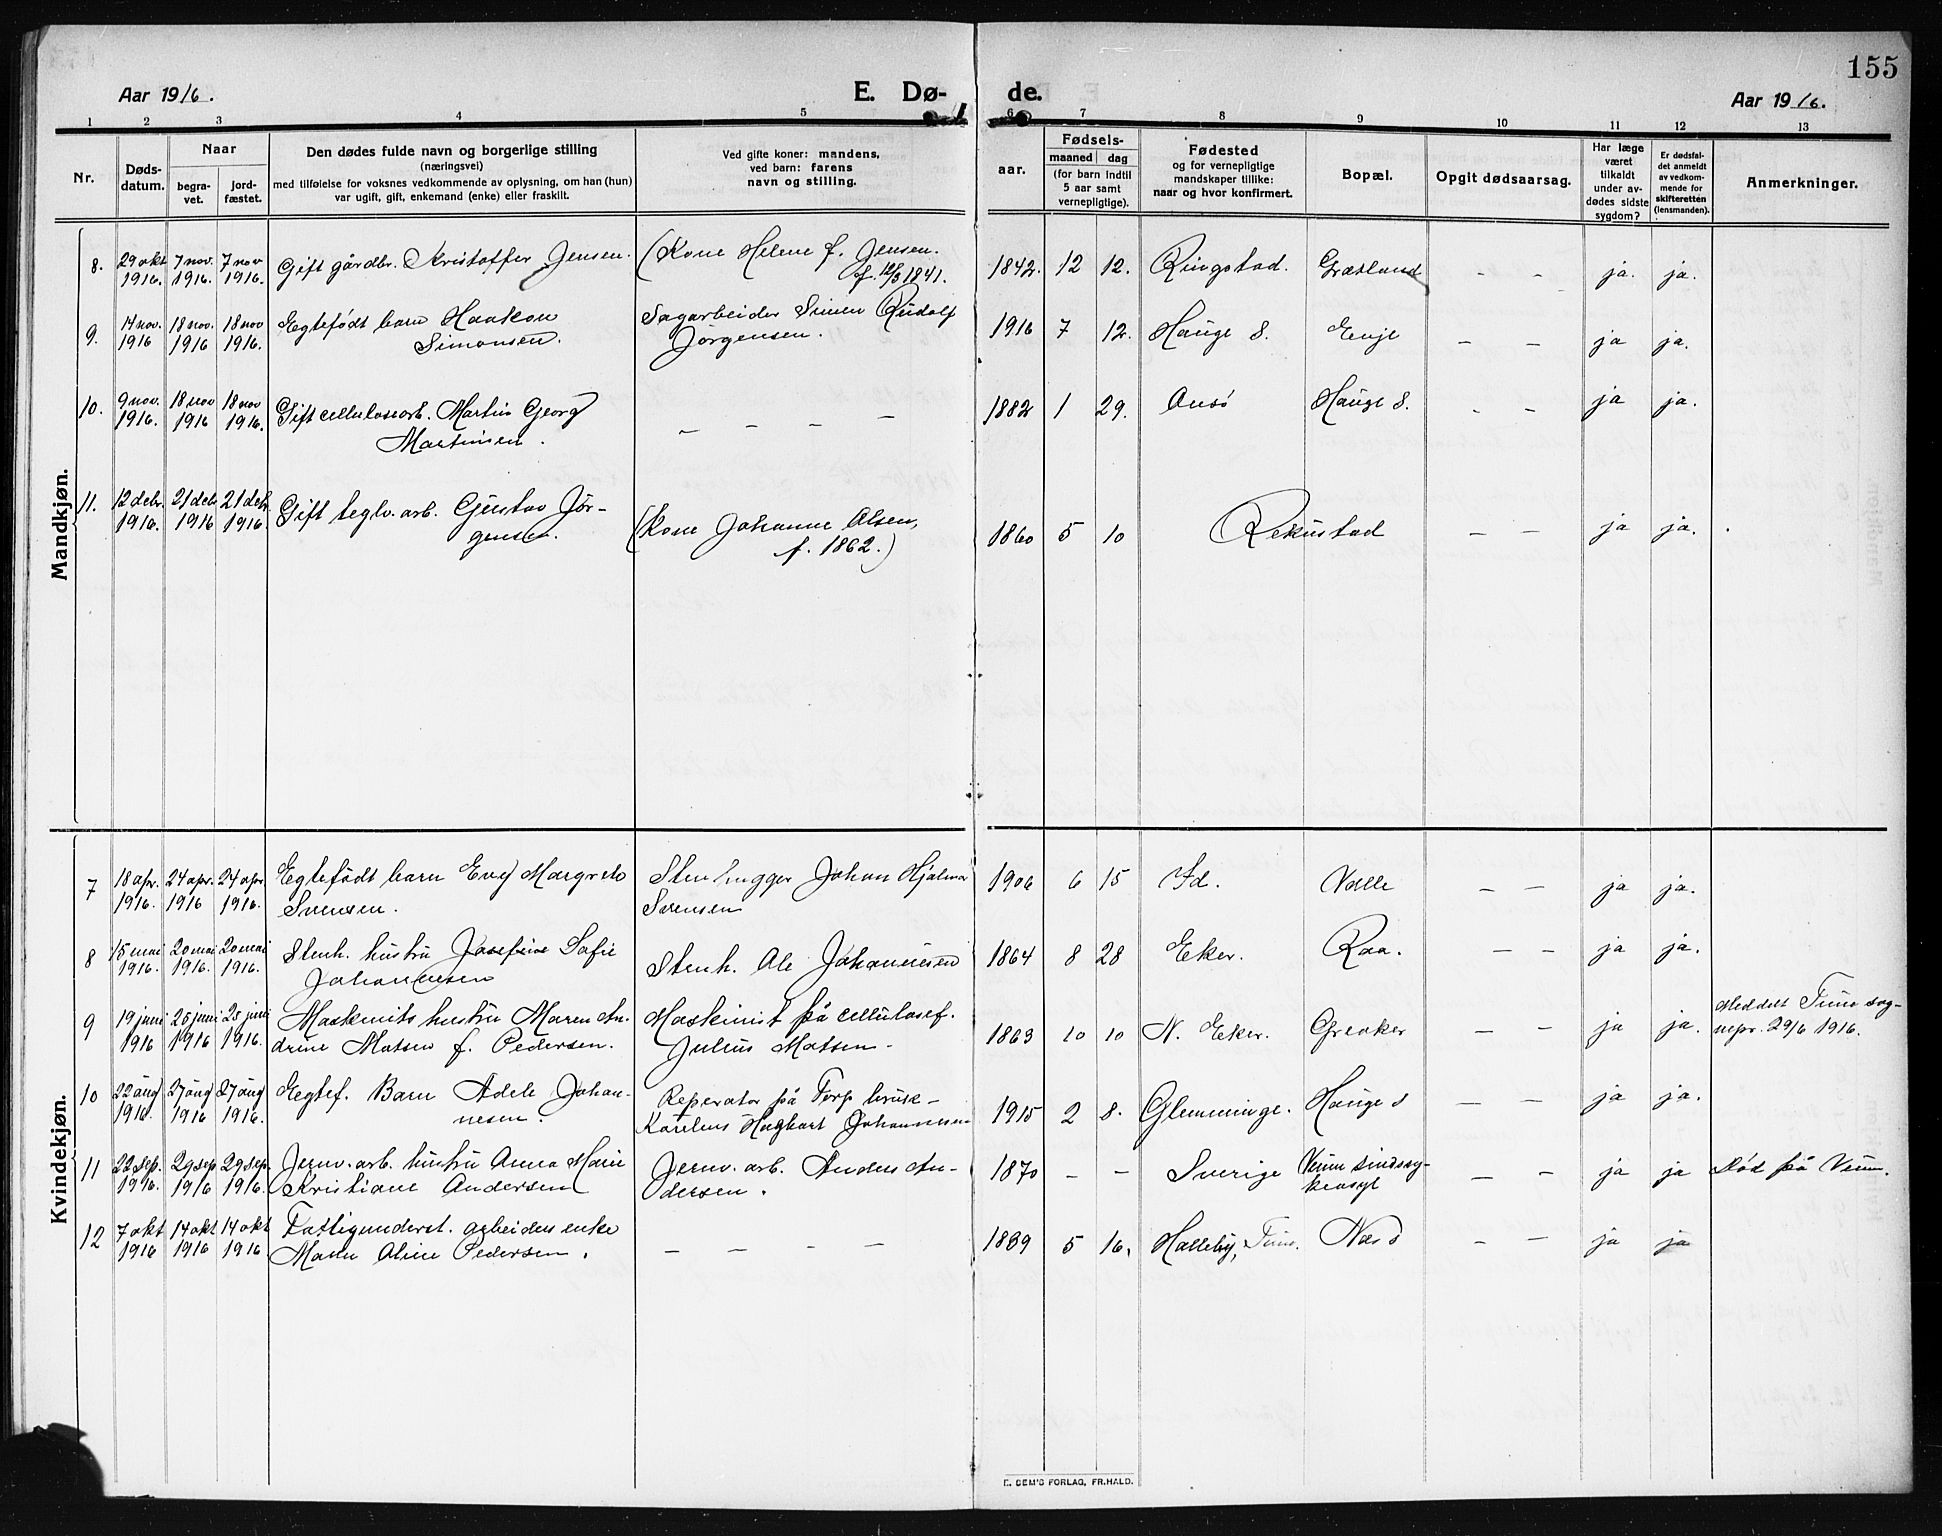 155
Aar 1916.
E. Dø-
de.
Aar 1916.
1 2 3 4 5 6 7 8 9 10 11 12 13
Nr.
Døds-
datum.
Naar
begra-
vet.
jord-
fæstet.
Den dødes fulde navn og borgerlige stilling
(næringsvei)
med tilføielse for voksnes vedkommende av oplysning, om han (hun)
var ugift, gift, enkemand (enke) eller fraskilt.
Ved gifte koner: mandens,
ved barn: farens
navn og stilling.
aar.
Fødsels-
maaned dag
(for barn indtil
5 aar samt
vernepligtige).
Fødested
og for vernepligtige
mandskaper tillike:
naar og hvor konfirmert.
Bopæl.
Opgit dødsaarsag.
Har læge
været
tilkaldt
under av-
dødes sidste
sygdom?
Er dødsfal-
det anmeldt
av vedkom-
mende for
skifteretten
(lensmanden).
Anmerkninger.
Mandkjøn.
8. 29 okt 1916. 7 nov. 1916. 7 nov 1916. Gift gårdbr. Kristoffer Jensen. (Kone Helene f. Jensen. 1842. 12 12. Ringstad. Græsland - - ja. ja.
f. 12/3 1841.
9. 14 nov. 1916 18 nov. 1916 18 nov 1916. Egtefødt barn Haakon Sagarbeider Simen Rudolf 1916 7 12. Hauge s. Enje - - ja ja.
Simonsen. Jørgensen.
10. 9 nov. 1916. 18 nov 1916 18 nov 1916. Gift cellulosearb. Martin Georg - - - - 1882 1 29. Ansø Hauge s. - - ja ja.
Martinsen.
11. 12 debr. 1916. 21 debr 1916 21 debr 1916 Gift teglv. arb. Gustav Jør- (Kone Johanne Olsen, 1860 5 10 Rekustad - - ja ja.
gensen. f. 1862.)
Kvindekjøn.
7 18 apr. 1916. 24 apr. 1916 24 apr 1916. Egtefødt barn Evy Margrete Stenhugger Johan Hjalmar 1906 6 15 Id. Valle - - ja ja.
Svensen. Svensen
8 15 mai 1916. 20 mai 1916. 20 mai 1916. Stenh. hustru Josefine Sofie Stenh. Ole Johannesen 1864 8 28 Eker. Raa. - - ja ja.
Johannesen
9 19 juni 1916 25 juni 1916 25 juni 1916. Maskinists hustru Maren An- Maskinist på cellulosef. 1863 10 10 N. Eker. Greaker - - ja ja. Meddelt Tune sog-
drine Matsen f. Pedersen. Julius Matsen - nepr. 29/6 1916.
10 22 aug 1916. 27 aug 1916 27 aug 1916. Egtef. Barn Adele Johan- Reperatør på Torp bruk - 1915 2 8. Glemminge. Hauge s - - ja ja.
nesen. Karelius Hagbart Johannesen
11 22 sep. 1916. 29 sep 1916 29 sep. 1916. Jernv. arb. hustru Anna Marie Jernv. arb. Anders An- 1870 - - Sverige Veum sindssy- - - ja ja Død på Veum.
Kristiane Andersen dersen. keasyl
12 7 okt 1916 14 okt 1916 14 okt 1916 Fattigunderst. arbeiders enke - - - - 1839 5 16. Halleby, Tune. Næs s - - ja ja
Maren Oline Pedersen.
E. SEM'S FORLAG, FR.HALD.